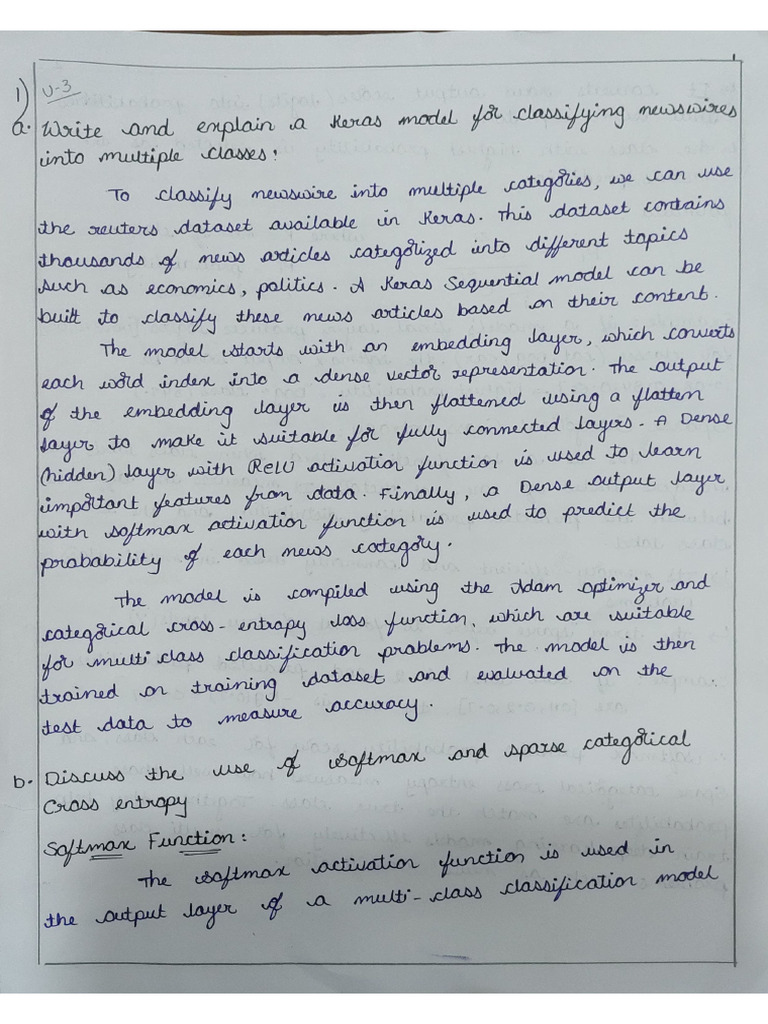 U-3
1)
a. Write and explain a Keras model for classifying newswires
into multiple classes:
To classify newswire into multiple categories, we can use
the reuters dataset available in Keras. This dataset contains
thousands of news articles categorized into different topics
such as economics, politics. A Keras Sequential model can be
built to classify these news articles based on their content.
The model starts with an embedding layer, which converts
each word index into a dense vector representation. The output
of the embedding layer is then flattened using a flatten
layer to make it suitable for fully connected layers. A Dense
(hidden) layer with ReLU activation function is used to learn
important features from data. Finally, a Dense output layer
with softmax activation function is used to predict the
probability of each news category.
The model is compiled using the Adam optimizer and
categorical cross-entropy loss function, which are suitable
for multi class classification problems. The model is then
trained on training dataset and evaluated on the
test data to measure accuracy.
b. Discuss the use of Softmax and sparse categorical
cross entropy
Softmax Function:
The softmax activation function is used in
the output layer of a multi-class classification model